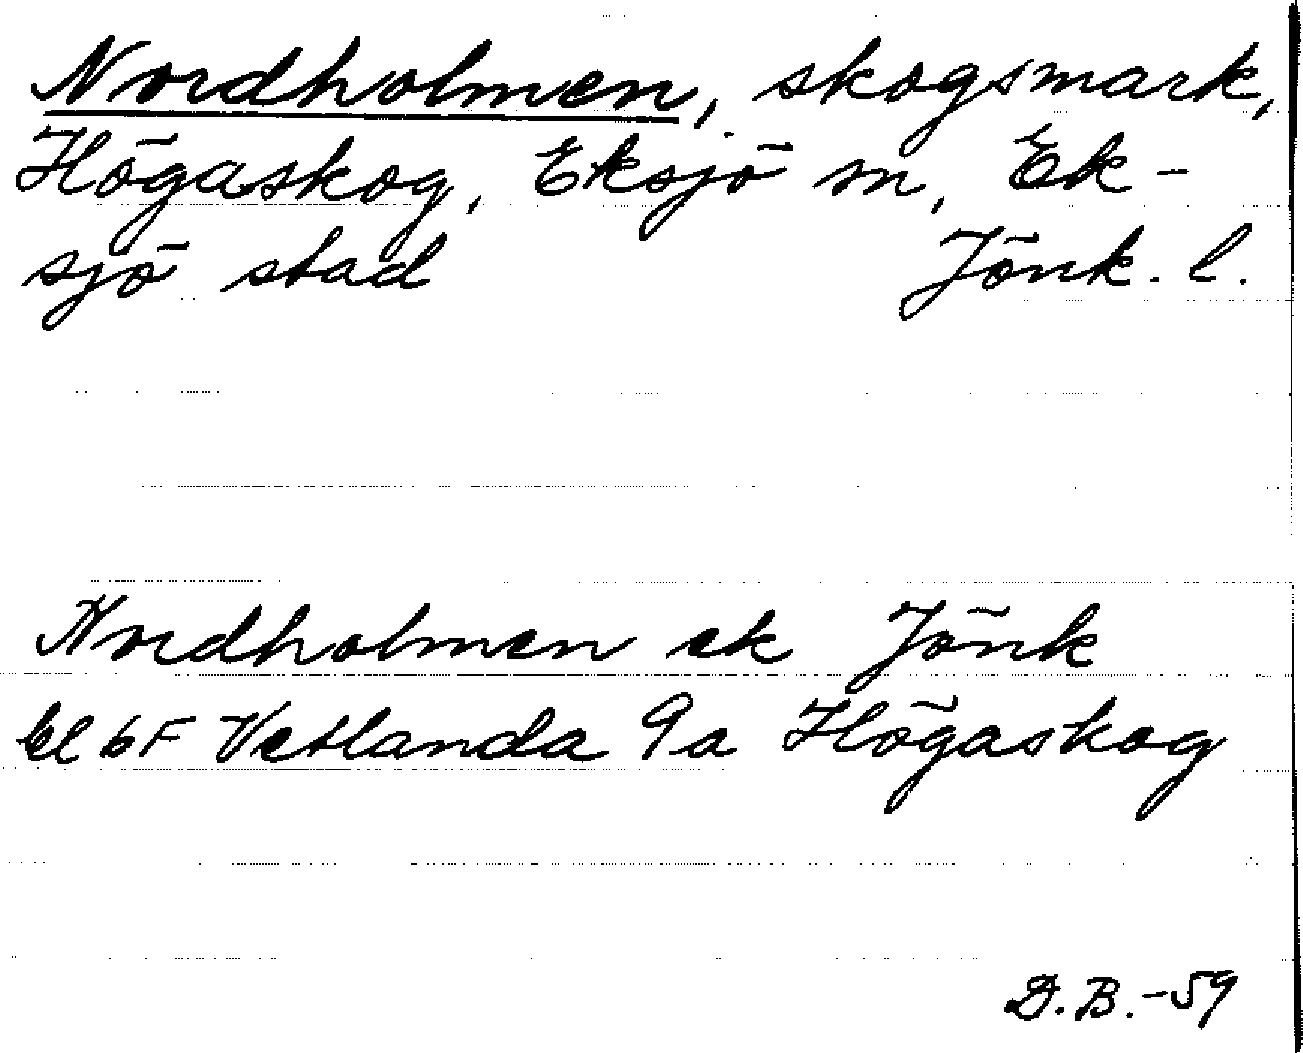 Nordholmen, skogsmark,
Högaskog, Eksjö m, Ek-
sjö stad Jönk. l.
Nordholmen ek Jönk
bl 6F Vetlanda 9a Högaskog
D.B.-59